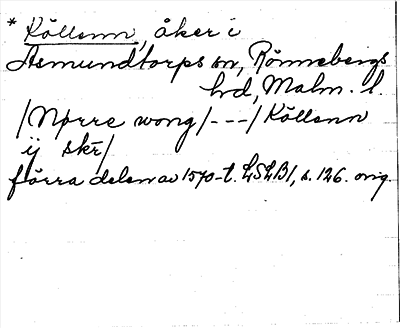 * Köllenn, åker i
Asmundtorps sn, Rönnebergs
hd, Malm. l.
/Nørre wong/---/Köllenn
ij skr/
förra delen av 1570-t. LSLB1, s. 126. orig.